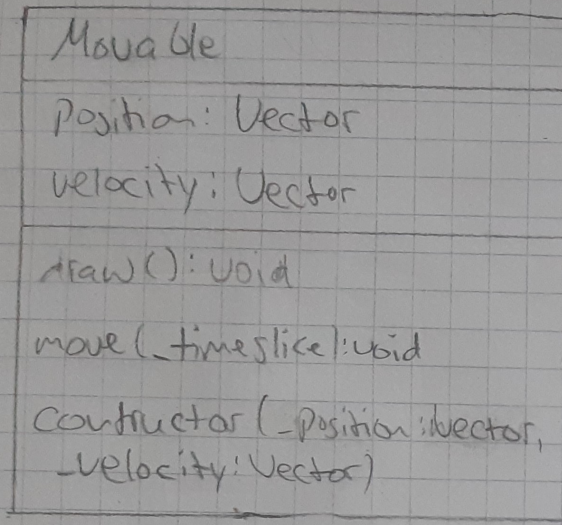 Movable
position: Vector
velocity: Vector
draw(): void
move(_timeslice): void
contructor(_position: Vector,
_velocity: Vector)